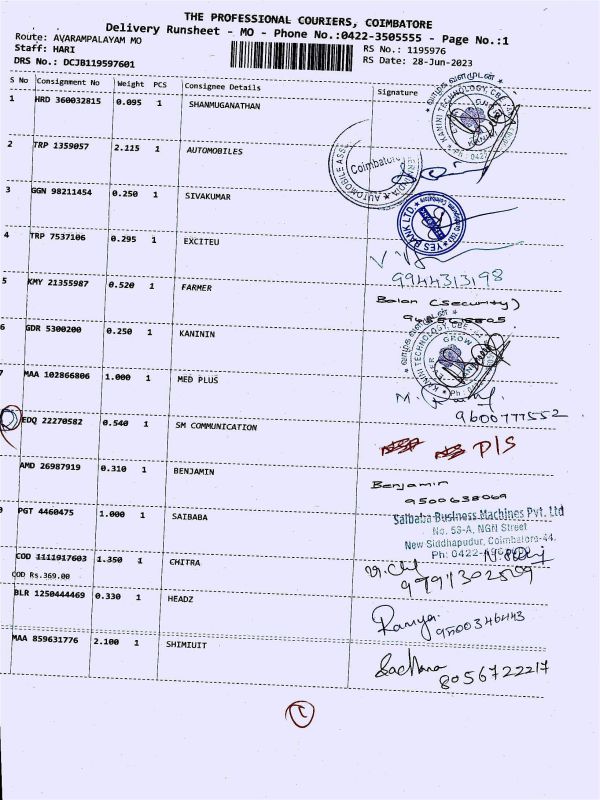 THE PROFESSIONAL COURIERS, COIMBATORE
Delivery Runsheet - MO - Phone No.:0422-3505555 - Page No.:1
Route: AVARAMPALAYAM MO
Staff: HARI
RS No.: 1195976
DRS No.: DCJB119597601
RS Date: 28-Jun-2023
S No Consignment No Weight PCS Consignee Details Signature
1 HRD 360032815 0.095 1 SHANMUGANATHAN
வாழ்க வளமுடன்
KANINI TECHNOLOGY, CBE
2 TRP 1359057 2.115 1 AUTOMOBILES
AUTOMOBILE ASS
Coimbatore
3 GGN 98211454 0.250 1 SIVAKUMAR
YES BANK LTD.
4 TRP 7537106 0.295 1 EXCITEU
9944313198
5 KMY 21355987 0.520 1 FARMER
Balan (Security)
6 GDR 5300200 0.250 1 KANININ
வாழ்க வளமுடன்
KANINI TECHNOLOGY, CBE
GROW
MAA 102866806 1.000 1 MED PLUS
9600777552
EDQ 22270582 0.540 1 SM COMMUNICATION
P/S
AMD 26987919 0.310 1 BENJAMIN
Benjamin
9500638069
PGT 4460475 1.000 1 SAIBABA
Saibaba Business Machines Pvt. Ltd
No. 53-A, NGN Street
New Siddhapudur, Coimbatore-44.
Ph: 0422-
COD 1111917603 1.350 1 CHITRA
COD Rs.369.00
BLR 1250444469 0.330 1 HEADZ
Ramya
9500346443
MAA 859631776 2.100 1 SHIMIUIT
Sadhana
8056722217